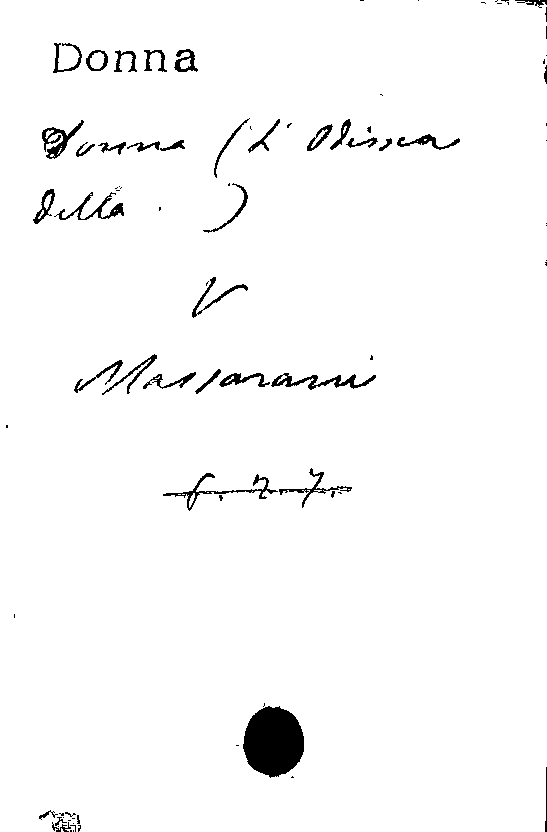 Donna
Donna (L' Odissea
della . )
V
Massarani
6. 2. 7.